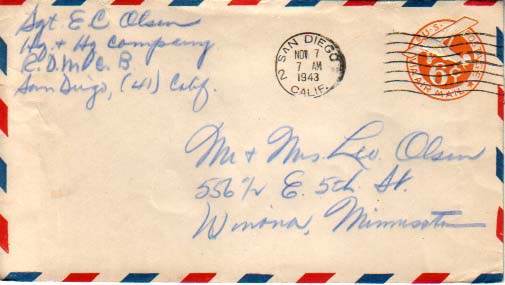 Sgt E C Olsen
Hq + Hq Company
R.D.M.C.B.
San Diego, (41) Calif.
2 SAN DIEGO
NOV 7
7 AM
1943
CALIF.
U.S.
6¢
VIA AIR MAIL
Mr + Mrs. Leo. Olsen
556 1/2 E. 5th St.
Winona, Minnesota